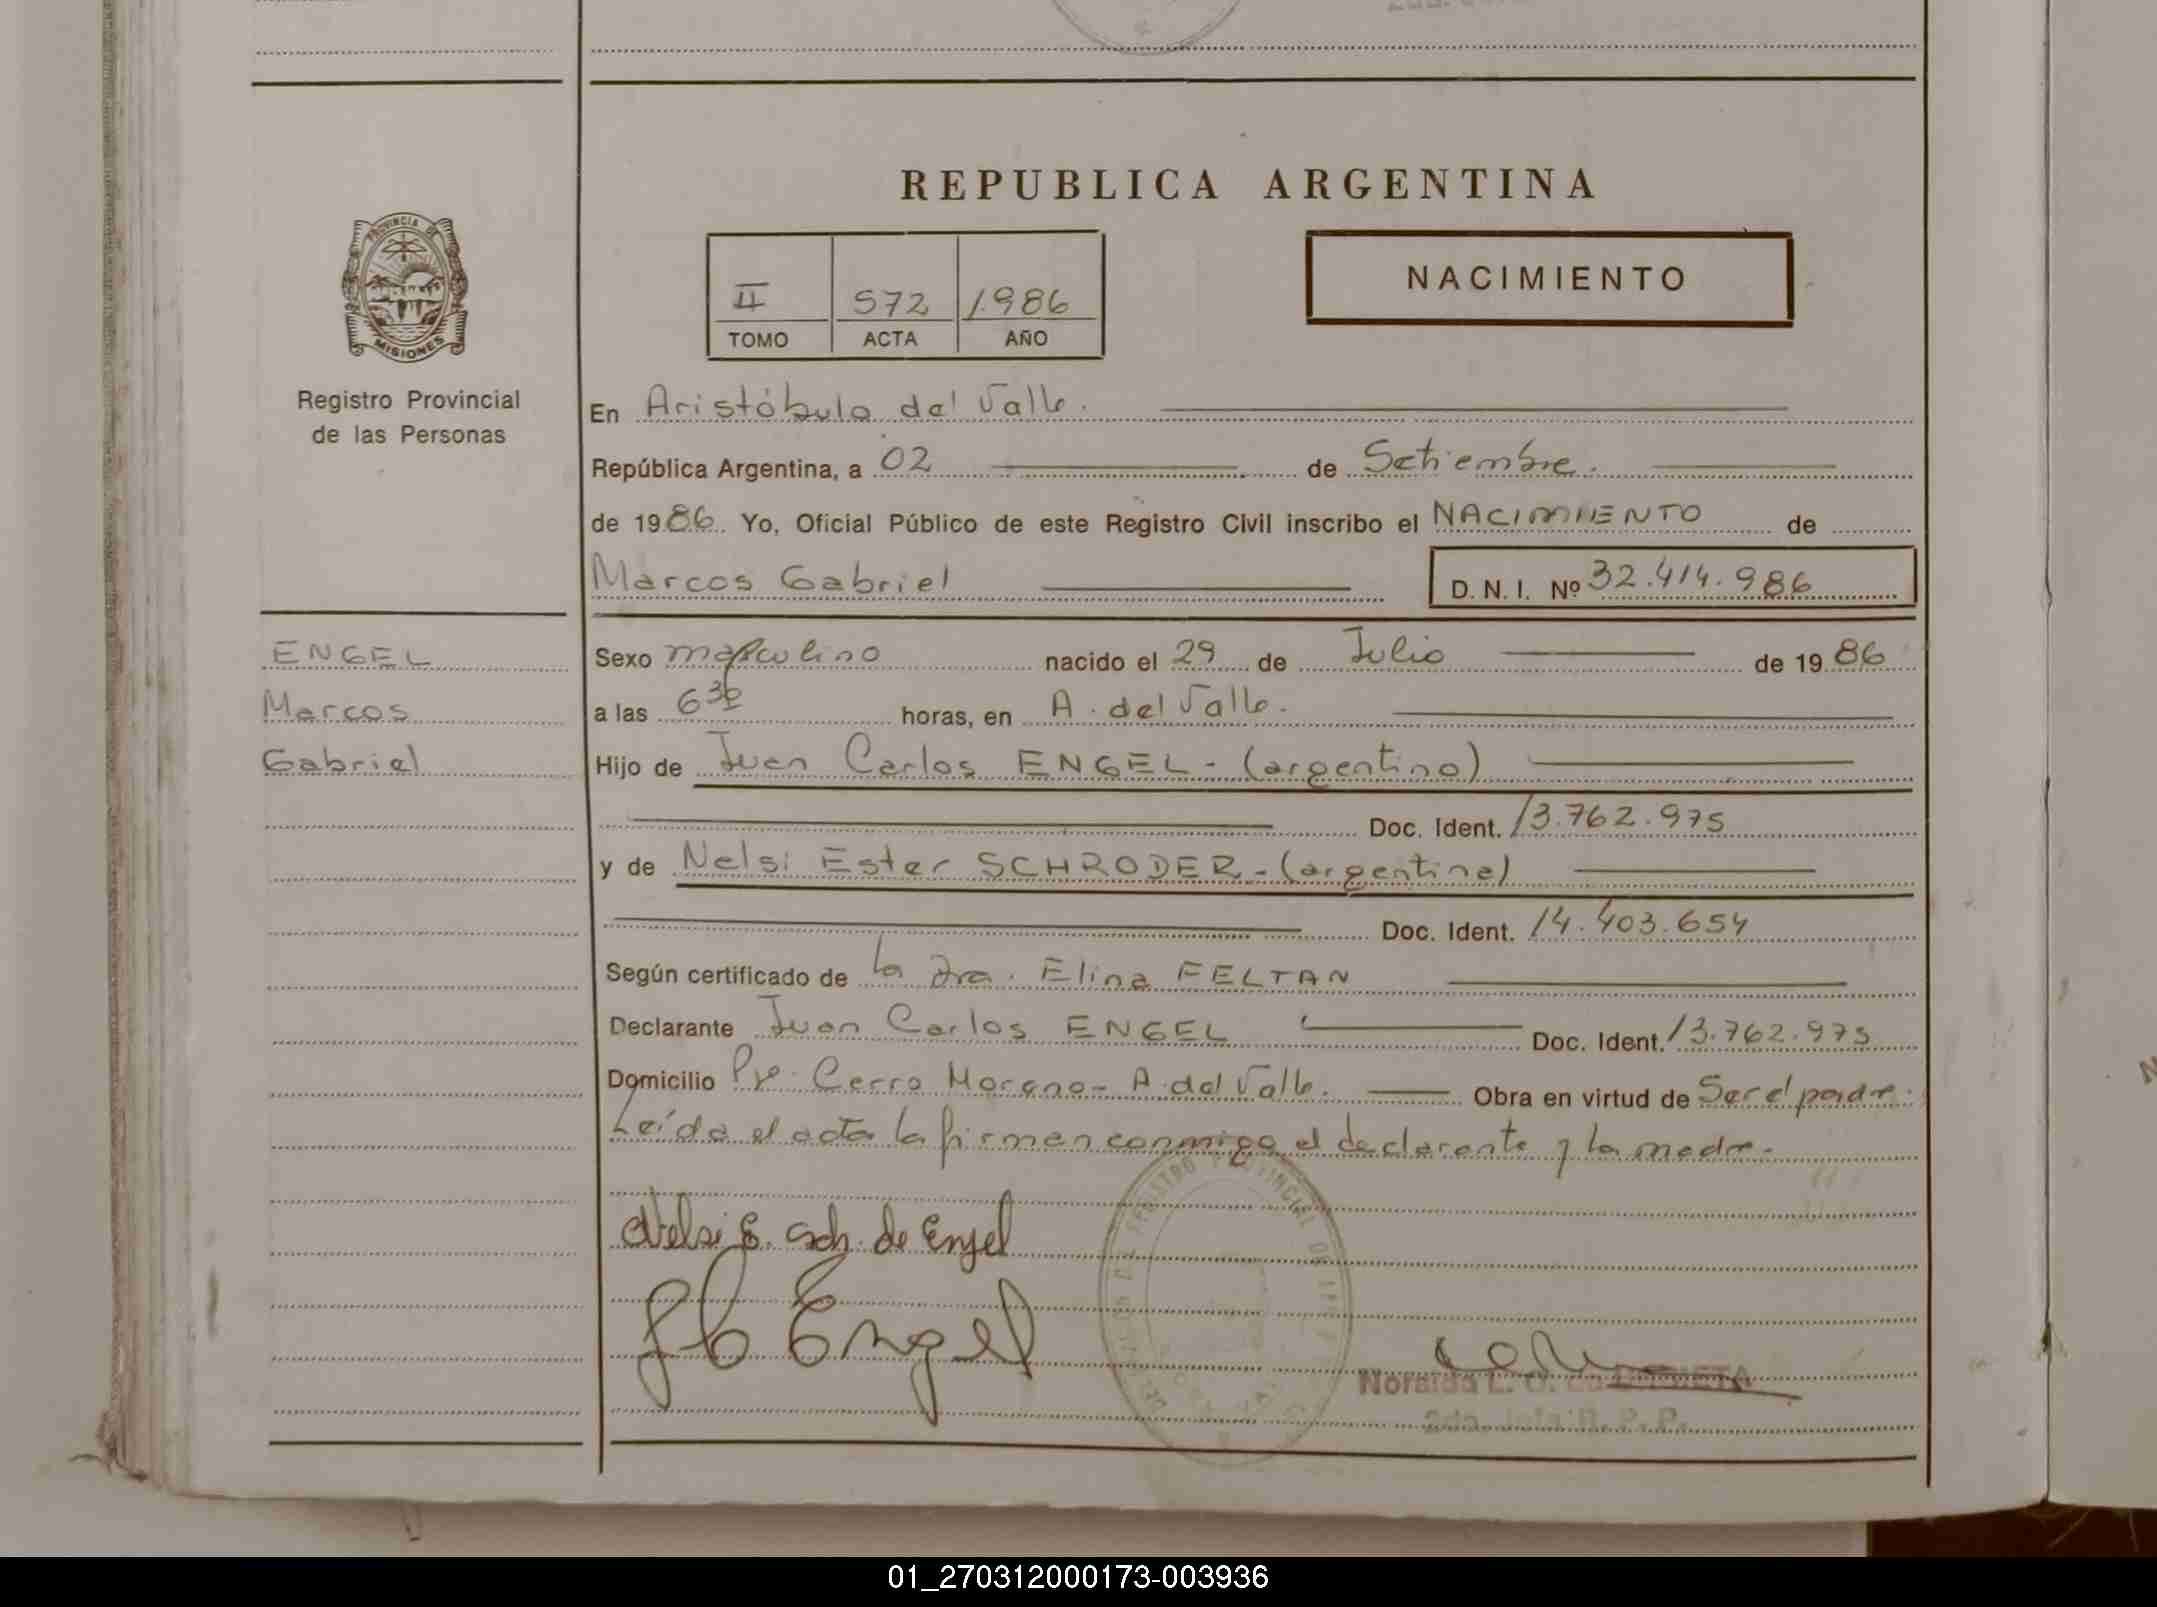 REPUBLICA ARGENTINA
PROVINCIA DE
MISIONES
Registro Provincial
de las Personas
II 572 1.986
TOMO ACTA AÑO
NACIMIENTO
En Aristóbulo del Valle.
República Argentina, a 02 de Setiembre.
de 1986 Yo, Oficial Público de este Registro Civil inscribo el NACIMIENTO de
Marcos Gabriel D. N. I. Nº 32.414.986
ENGEL
Marcos
Gabriel
Sexo masculino nacido el 29 de Julio de 1986
a las 6 30 horas, en A. del Valle.
Hijo de Juan Carlos ENGEL - (argentino)
Doc. Ident. 13.762.975
y de Nelsi Ester SCHRODER - (argentina)
Doc. Ident. 14.403.654
Según certificado de la Dra. Elina FELTAN
Declarante Juan Carlos ENGEL Doc. Ident. 13.762.975
Domicilio Cerro Moreno - A. del Valle. Obra en virtud de Ser el padre.
Leída el acta la firman conmigo el declarante y la madre.
Nelsi E. Sch. de Engel
J C Engel
REGISTRO PROVINCIAL DE LAS
Noraida L. O.
2da. Jefa R. P. P.
01_270312000173-003936